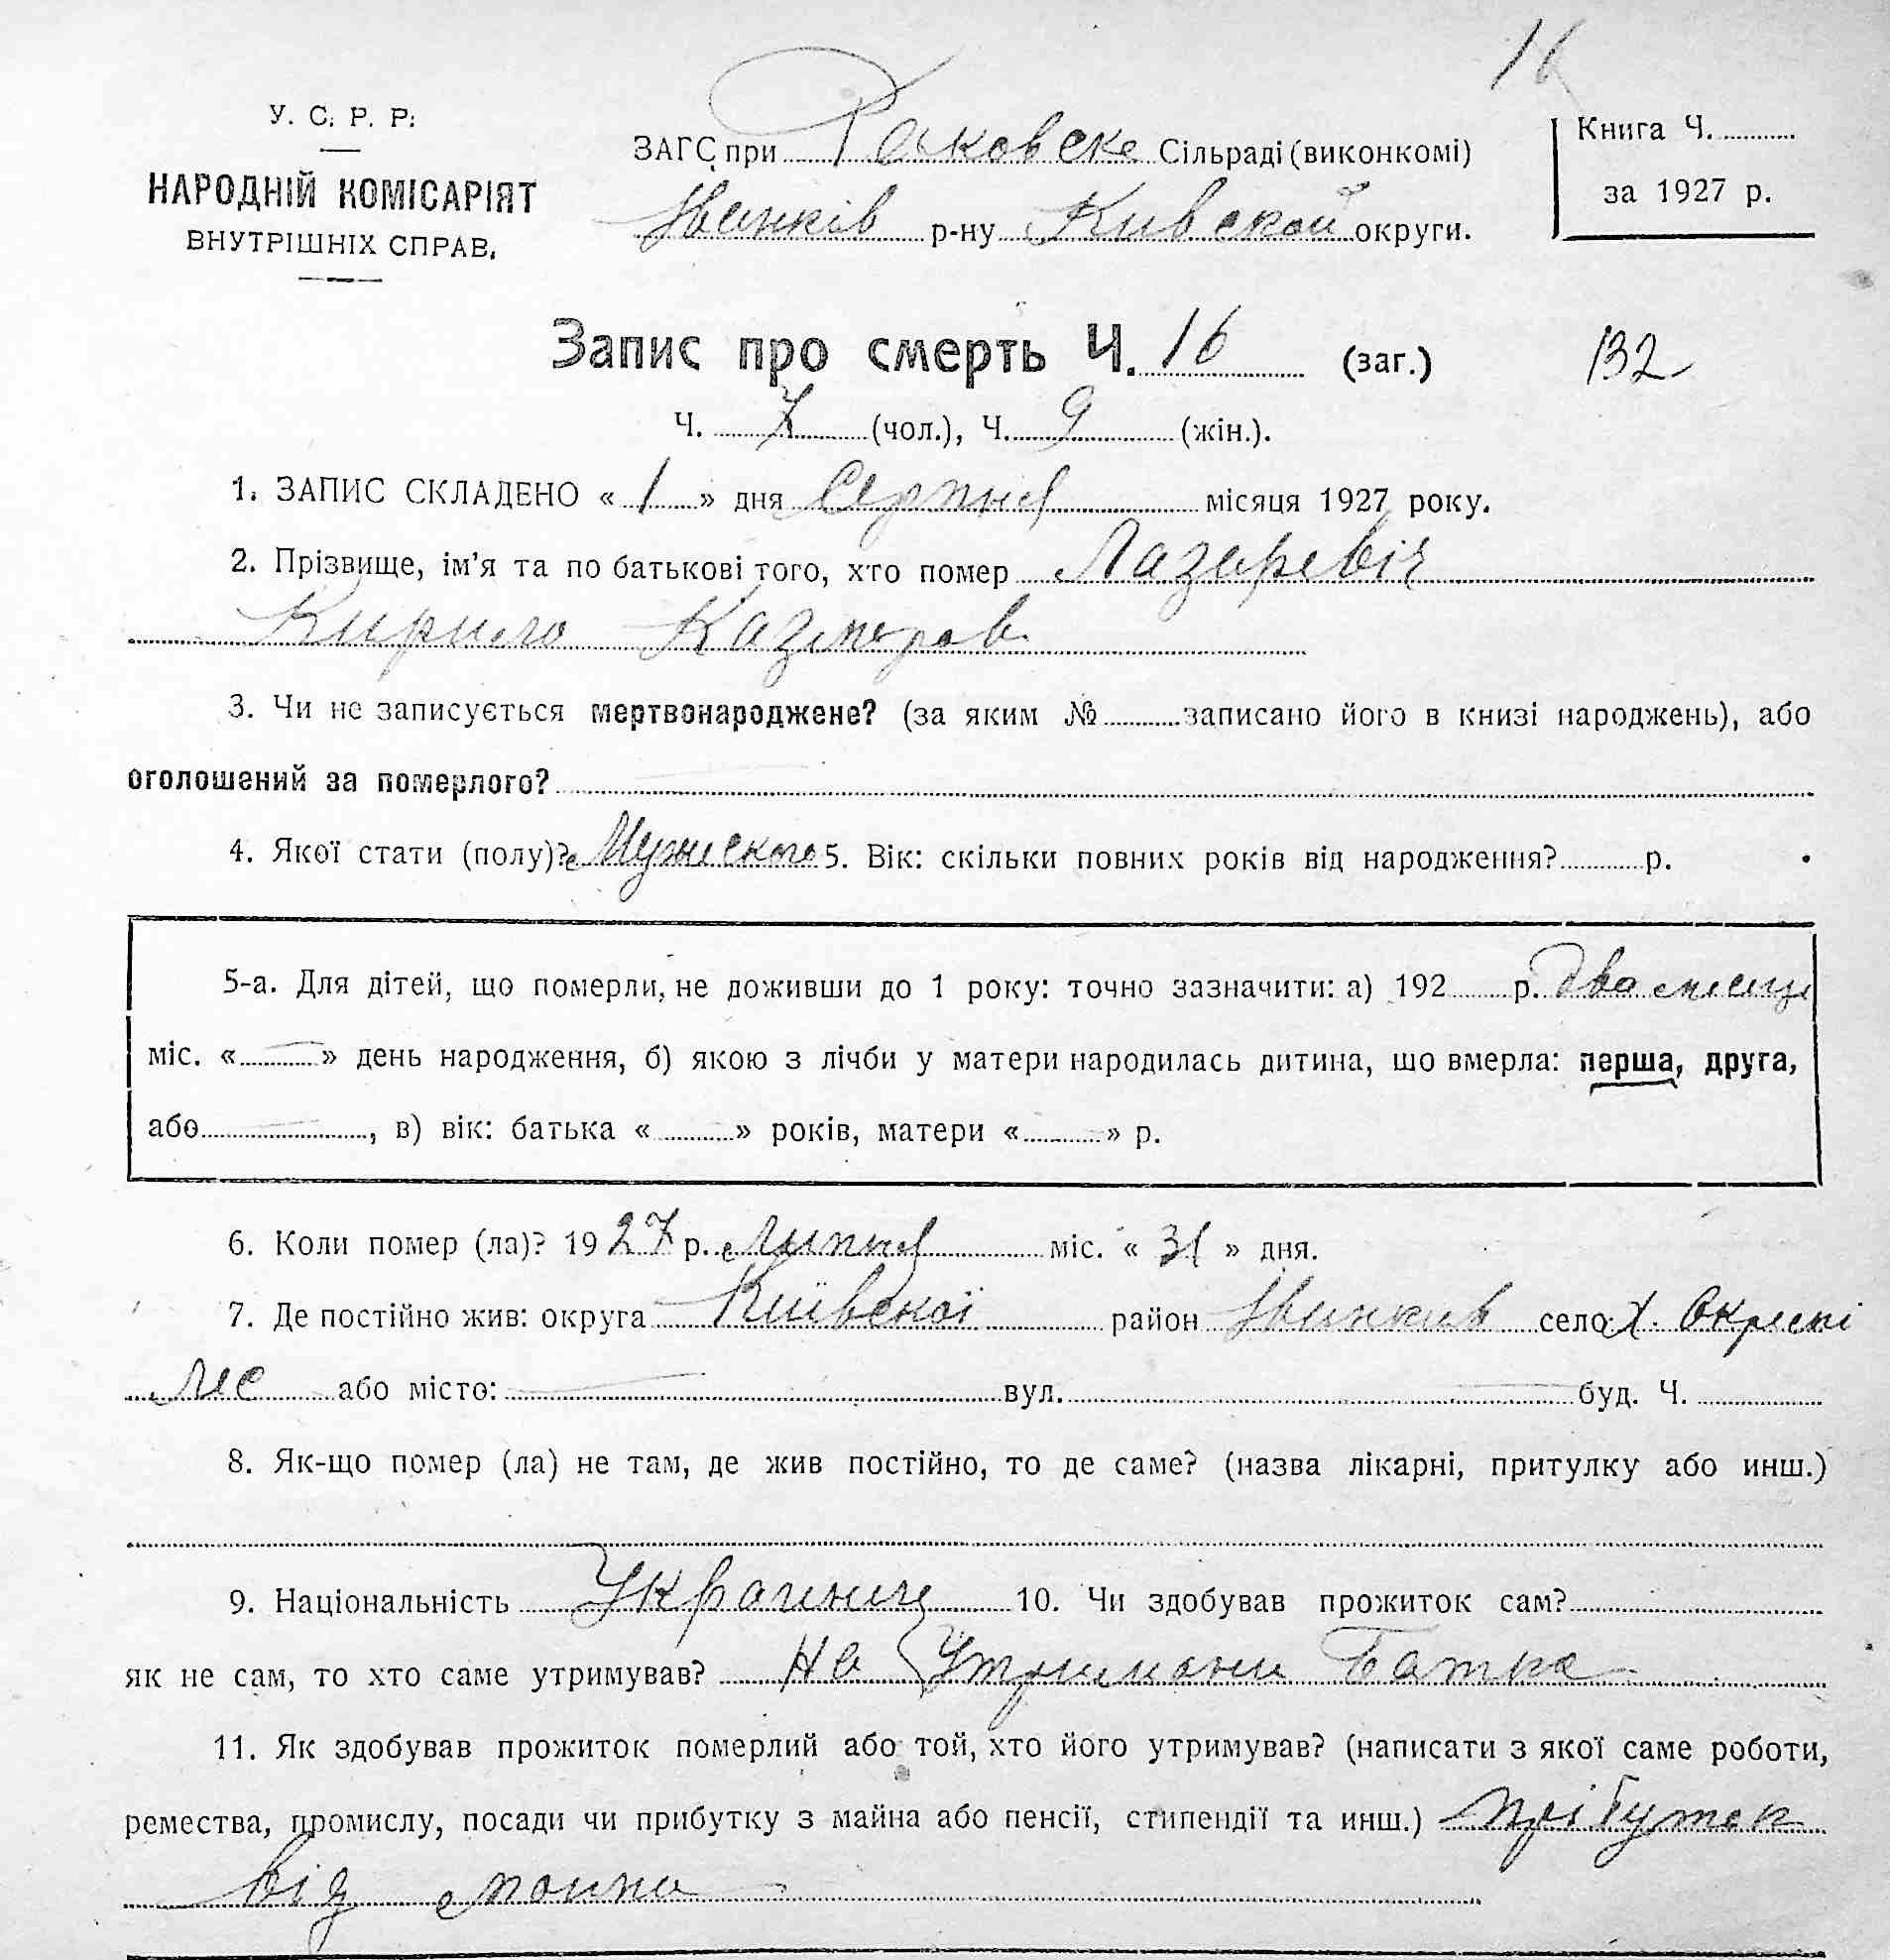 16
У. С. Р. Р.
НАРОДНІЙ КОМІСАРІЯТ
ВНУТРІШНІХ СПРАВ.
ЗАГС при Раковске Сільраді (виконкомі)
Іванків р-ну Кивской округи.
Книга Ч.
за 1927 р.
Запис про смерть Ч. 16 (заг.) 132
Ч. 7 (чол.), Ч. 9 (жін.).
1. ЗАПИС СКЛАДЕНО « 1 » дня Серпня місяця 1927 року.
2. Прізвище, ім'я та по батькові того, хто помер Лазаревіч
Кирило Казімеров
3. Чи не записується мертвонароджене? (за яким № записано його в книзі народжень), або
оголошений за померлого?
4. Якої стати (полу)? Мужеского 5. Вік: скільки повних років від народження? р.
5-а. Для дітей, що померли, не доживши до 1 року: точно зазначити: а) 192 р. два месеца
міс. « — » день народження, б) якою з лічби у матери народилась дитина, що вмерла: перша, друга,
або , в) вік: батька « » років, матери « » р.
6. Коли помер (ла)? 1927 р. Липня міс. « 31 » дня.
7. Де постійно жив: округа Київскої район Іванкив село х.
або місто: вул. буд. Ч.
8. Як-що помер (ла) не там, де жив постійно, то де саме? (назва лікарні, притулку або инш.)
9. Національність Украинец 10. Чи здобував прожиток сам?
як не сам, то хто саме утримував? на Утримани Батка
11. Як здобував прожиток померлий або той, хто його утримував? (написати з якої саме роботи,
ремества, промислу, посади чи прибутку з майна або пенсії, стипендії та инш.) прібуток
від маина